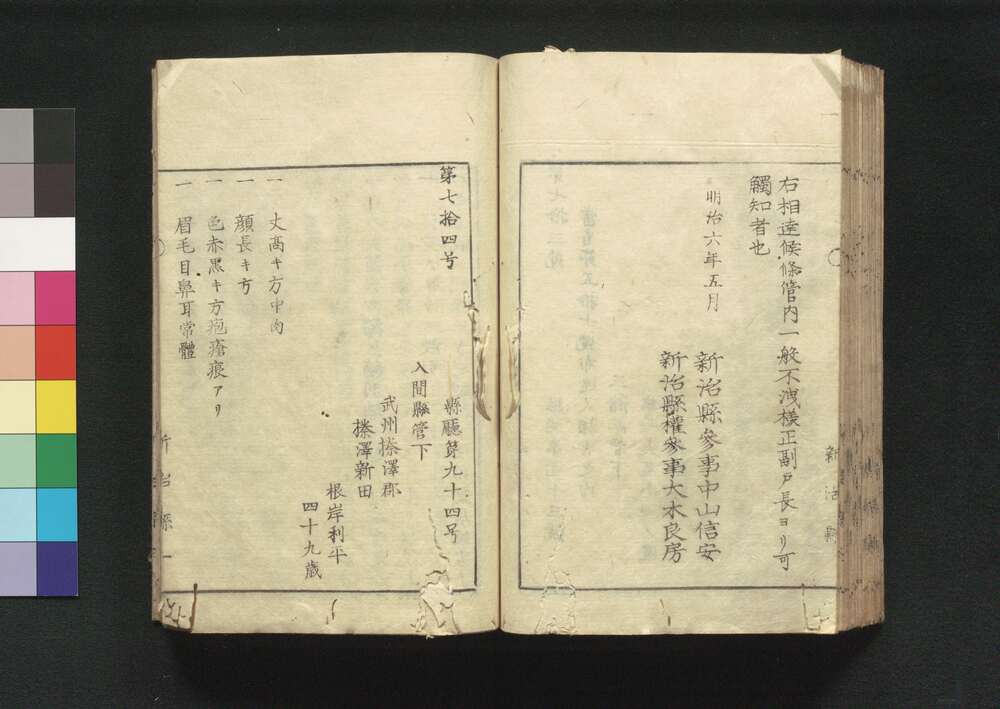 右相達候條管内一般不洩様正副戸長ヨリ可
觸知者也
明治六年五月
新治縣參事中山信安
新治縣權參事大木良房
第七拾四号
縣廳第九十四号
入間縣管下
武州榛澤郡
榛澤新田
根岸利平
四十九歳
一 丈高キ方中肉
一 顔長キ方
一 色赤黒キ方疱瘡痕アリ
一 眉毛目鼻耳常體
新治縣